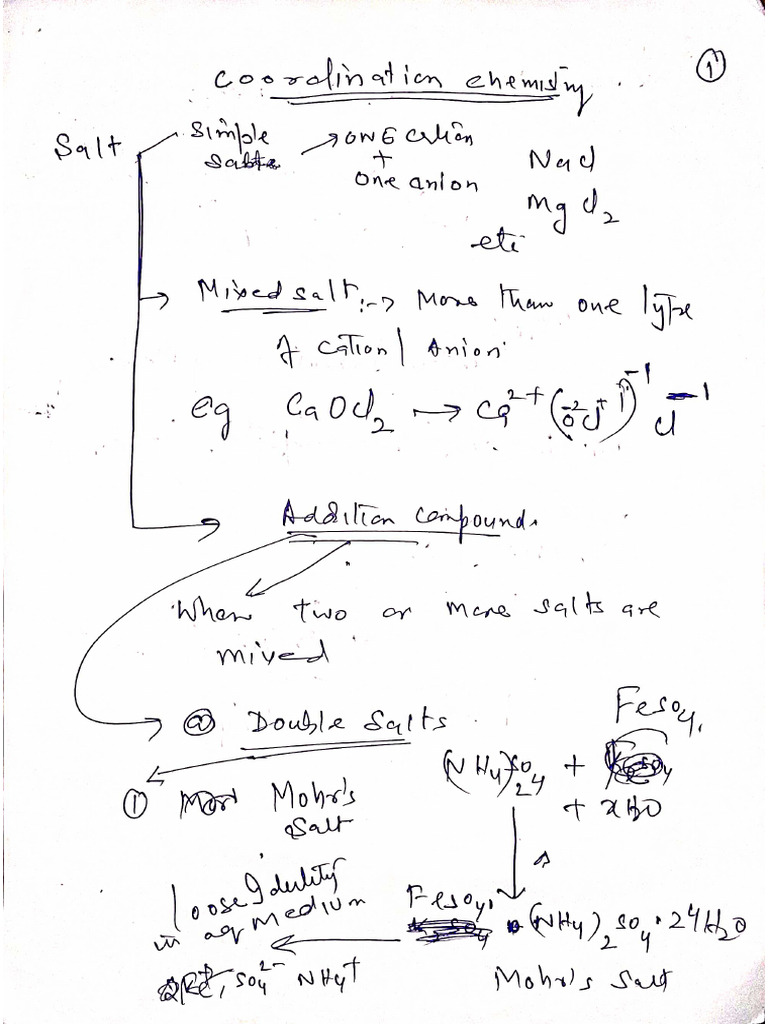 ①
Coordination chemistry
Salt
Simple salts → ONE cation + One anion
NaCl
MgCl₂
etc
→ Mixed salt :-> More than one type
of cation / Anion
eg CaOCl₂ → Ca²⁺ (O⁻²Cl⁺¹)⁻¹ Cl⁻¹
→ Addition compounds
When two or more salts are
mixed
ⓐ Double Salts
FeSO₄.
(NH₄)₂SO₄ +
+ xH₂O
Δ
① Mohr's
Salt
FeSO₄. (NH₄)₂SO₄ · 24H₂O
Mohr's Salt
loose Identity
in aq medium
Fe²⁺, SO₄²⁻ NH₄⁺